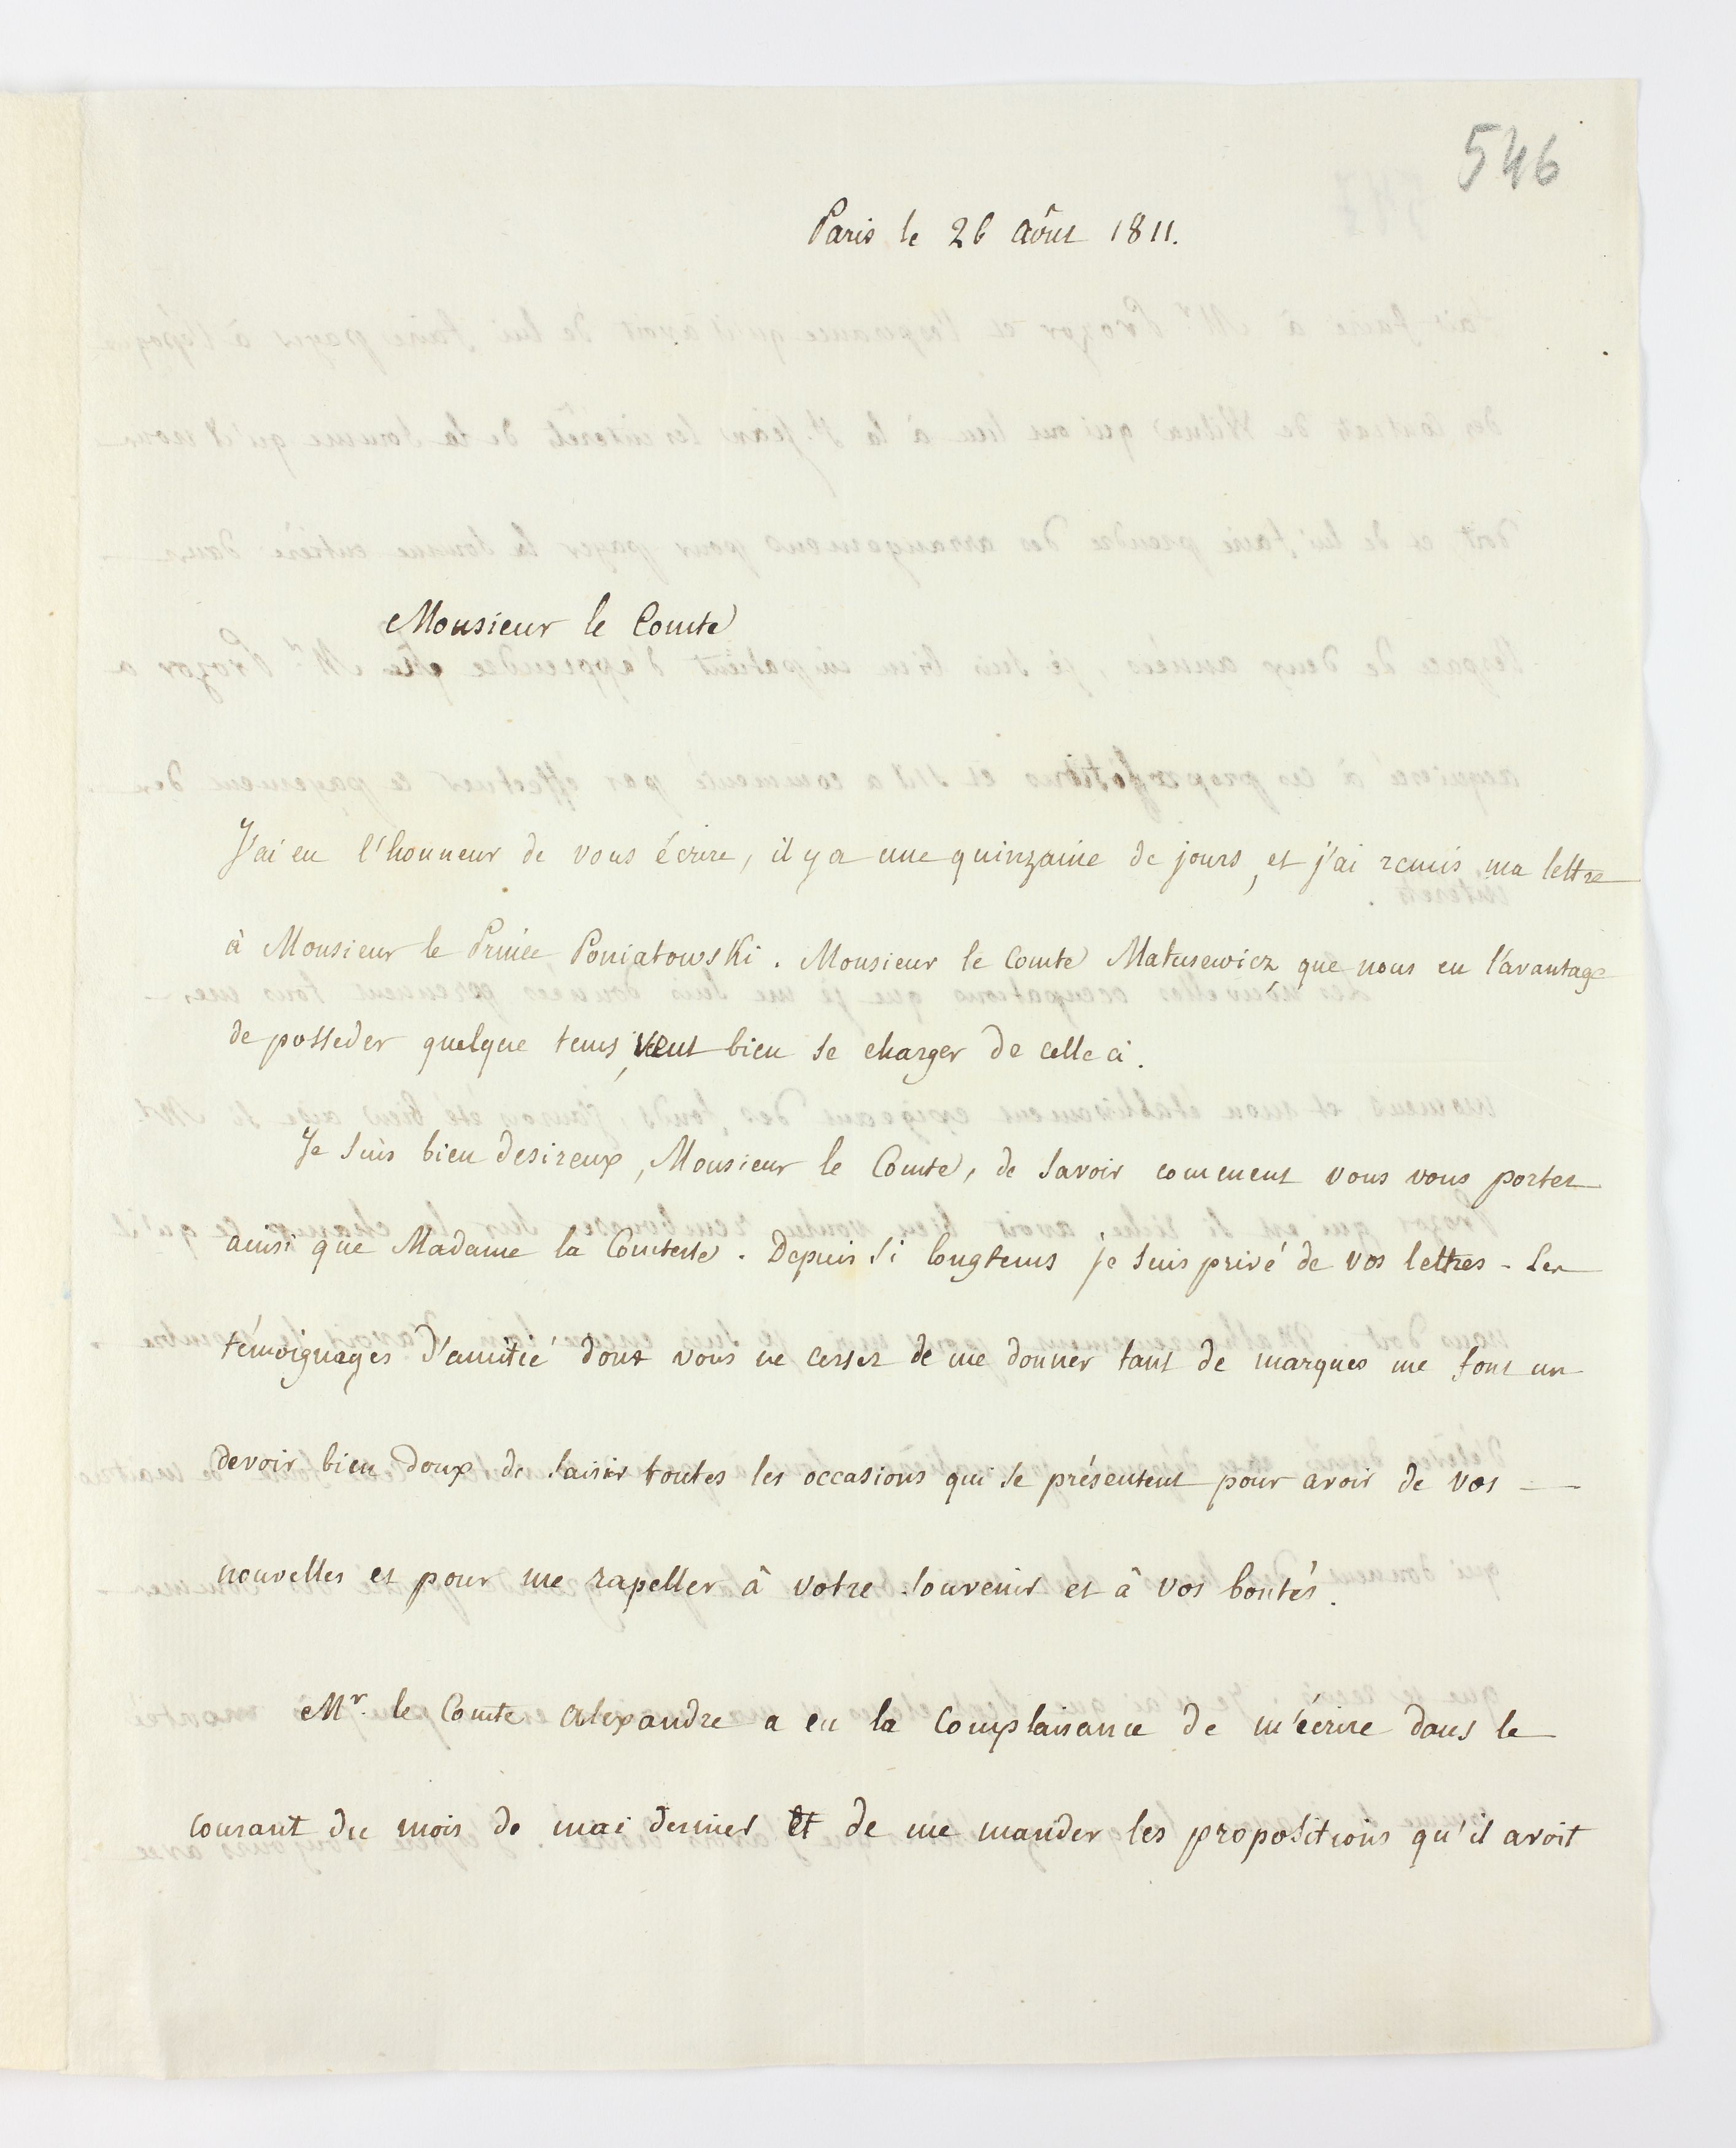 546
Paris le 26 Août 1811.
Monsieur le Comte
J'ai eu l'honneur de vous écrire, il y a une quinzaine de jours, et j'ai remis ma lettre
à Monsieur le Prince Poniatowski. Monsieur le Comte Matusewicz que nous eu l'avantage
de posseder quelque tems, veut bien se charger de celle ci.
Je suis bien desireux, Monsieur le Comte, de savoir comment vous vous portez
ainsi que Madame la Comtesse. Depuis si longtems je suis privé de vos lettres - Les
témoignages d'amitié dont vous ne cessez de me donner tant de marques me font un
devoir bien doux de saisir toutes les occasions qui se présentent pour avoir de vos —
nouvelles et pour me rapeller à votre souvenir et à vos bontés.
Mr. le Comte Alexandre a eu la complaisance de m'écrire dans le
courant du mois de mai dernier et de me mander les propositions qu'il avoit